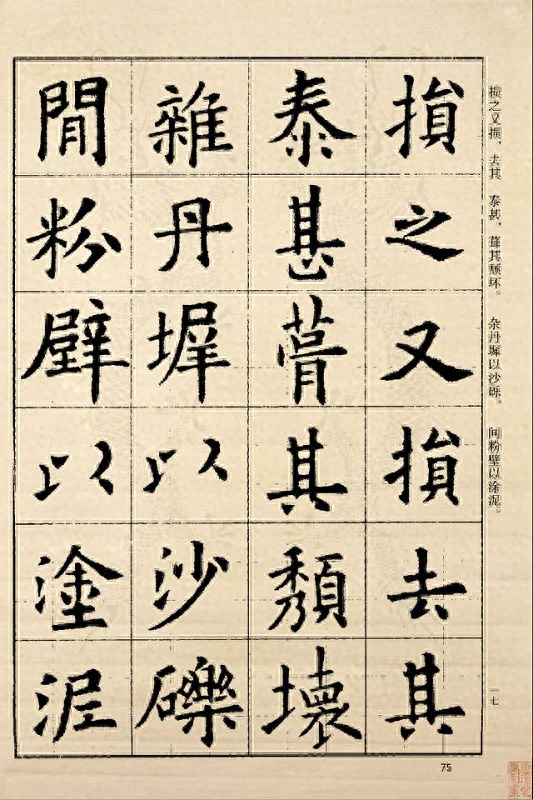 损之又损、去其 泰甚，葺其颓坏。 杂丹墀以沙砾。 间粉壁以涂泥。
損之又損去其
泰甚葺其頹壞
雜丹墀以沙礫
閒粉壁以塗泥
一七
75